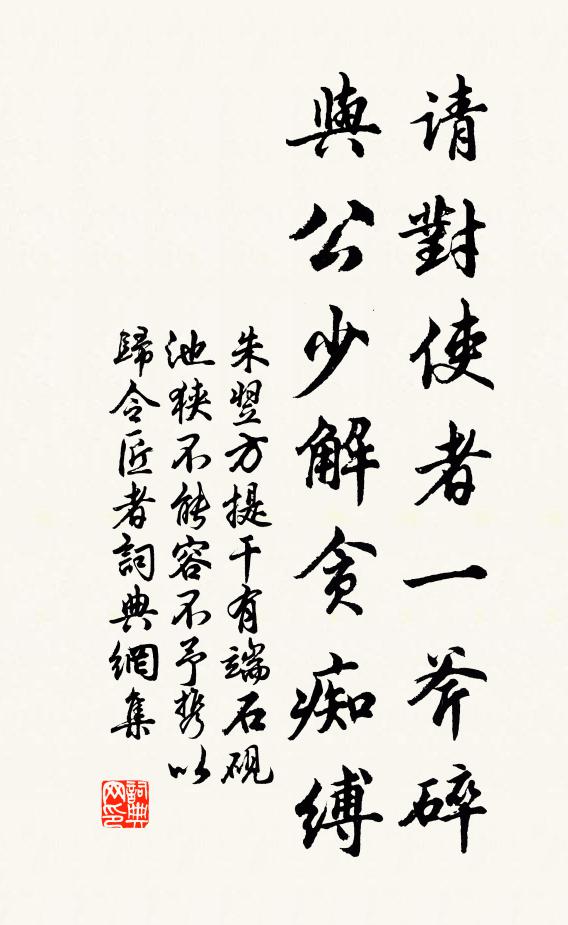 请對使者一斧碎
與公少解貪痴縛
朱翌方提干有端石硯
池狹不能容不予携以
歸令匠者詞典網集
詞典网印